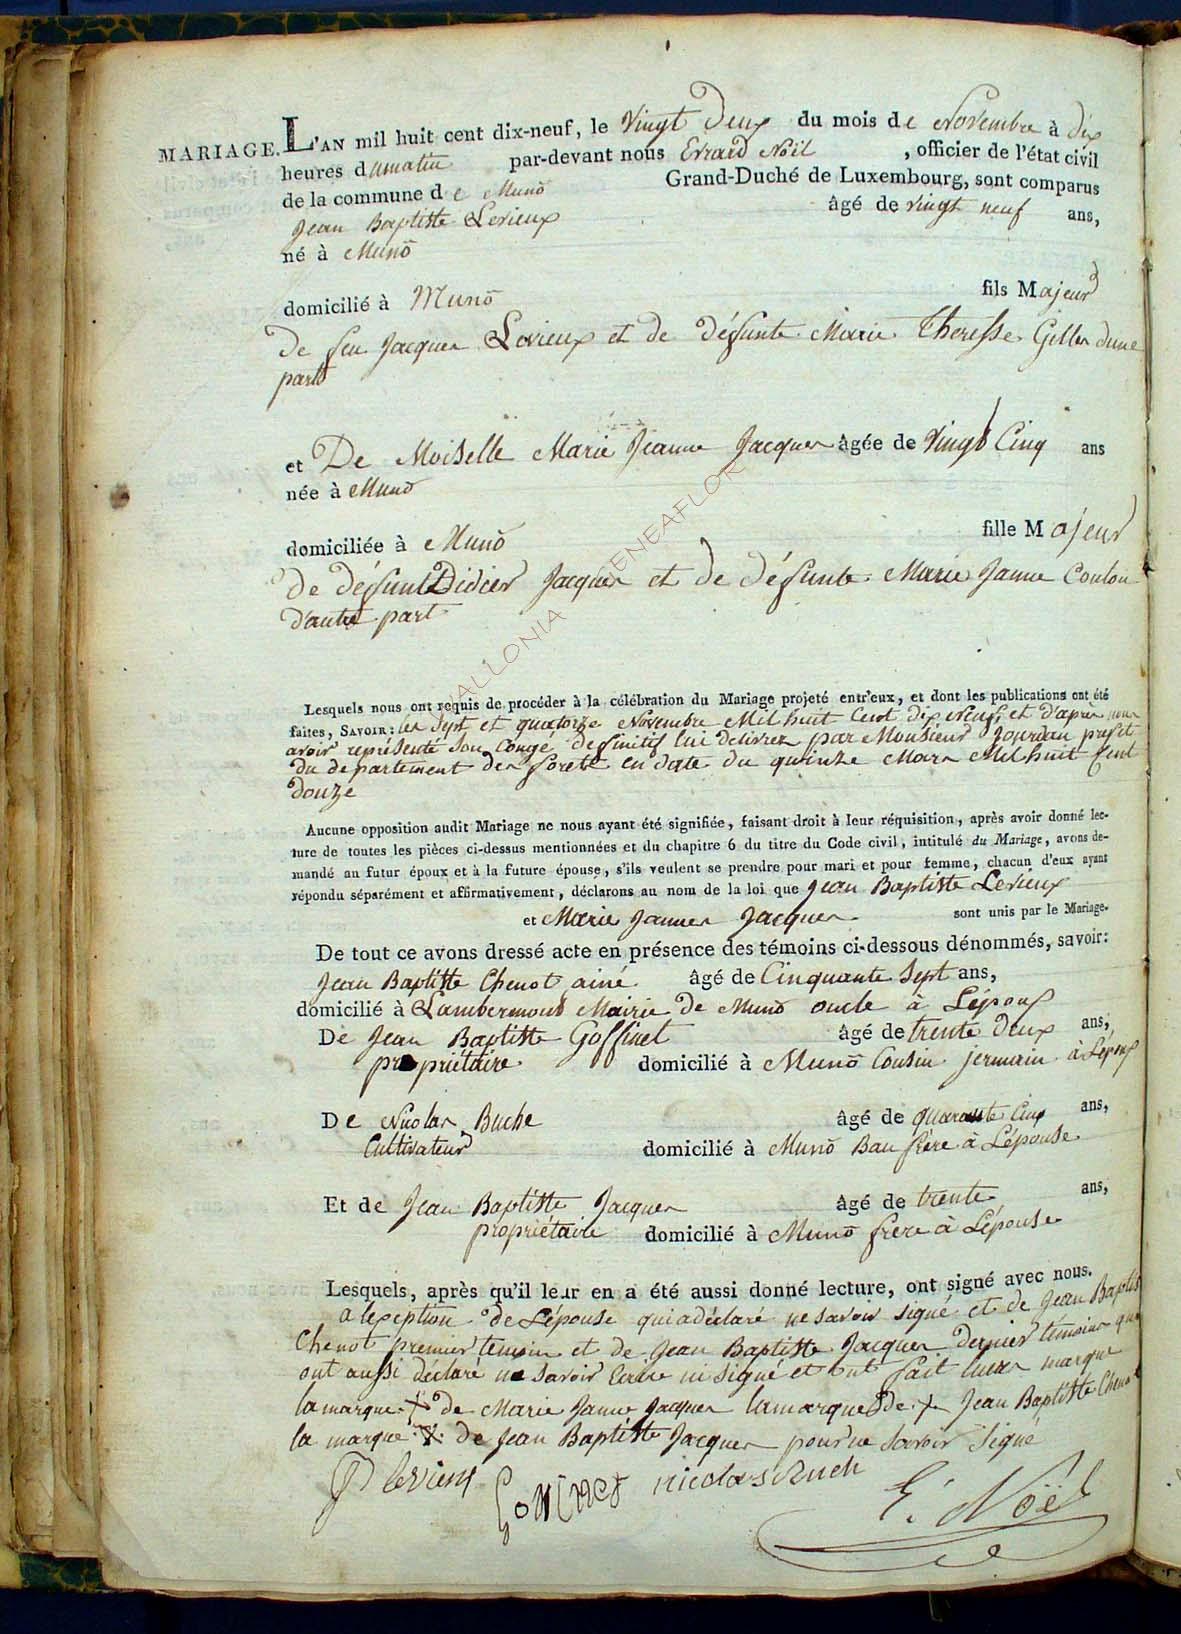 MARIAGE. L'AN mil huit cent dix-neuf, le Vingt Deux du mois de Novembre à dix
heures dumatin par-devant nous Evrard Noël , officier de l'état civil
de la commune de Muno Grand-Duché de Luxembourg, sont comparus
Jean Baptiste Levieux âgé de vingt neuf ans,
né à Muno
domicilié à Muno fils Majeur
De feu Jacques Levieux et de défunte Marie Theresse Gilles dune
part
et De Moiselle Marie Jeanne Jacques âgée de Vingt Cinq ans
née à Muno
domiciliée à Muno fille Majeur
de défunt Didier Jacques et de défunte Marie Janne Coulon
d'autre part
Lesquels nous ont requis de procéder à la célébration du Mariage projeté entr'eux, et dont les publications ont été
faites, SAVOIR: les Sept et quatorze Novembre Mil huit Cent dix Neuf, et d'après nous
avoir représenté son Congé definitif lui delivrez par Monsieur Jourdan préfet
du departement des forets en date du quinze Mars Mil huit Cent
douze
Aucune opposition audit Mariage ne nous ayant été signifiée, faisant droit à leur réquisition, après avoir donné lec-
ture de toutes les pièces ci-dessus mentionnées et du chapitre 6 du titre du Code civil, intitulé du Mariage, avons de-
mandé au futur époux et à la future épouse, s'ils veulent se prendre pour mari et pour femme, chacun d'eux ayant
répondu séparément et affirmativement, déclarons au nom de la loi que Jean Baptiste Levieux
et Marie Jannes Jacques sont unis par le Mariage.
De tout ce avons dressé acte en présence des témoins ci-dessous dénommés, savoir:
Jean Baptiste Chenot ainé âgé de Cinquante Sept ans,
domicilié à Lambermont Mairie de Muno oncle à Lépoux
De Jean Baptiste Goffinet âgé de trente deux ans,
propriétaire domicilié à Muno Cousin jermain à Lépoux
De Nicolas Buche âgé de quarante Cinq ans,
Cultivateur domicilié à Muno Bau frère à Lépouse
Et de Jean Baptiste Jacques âgé de trente ans,
propriétaire domicilié à Muno frère à Lépouse
Lesquels, après qu'il leur en a été aussi donné lecture, ont signé avec nous.
a lexeption de Lépouse qui a déclaré ne savoir signé et de Jean Baptis
Chenot premier temoin et de Jean Baptiste Jacques dernier temoins qui
ont aussi déclaré ne savoir Ecrire ni signé et ont fait leurs marque
la marque + de Marie Janne Jacques la marque de + Jean Baptiste Chenot
la marque + de Jean Baptiste Jacques pour ne savoir signé
levieux Goffinet nicolas Buch E. Noël
WALLONIA GENEAFLOR